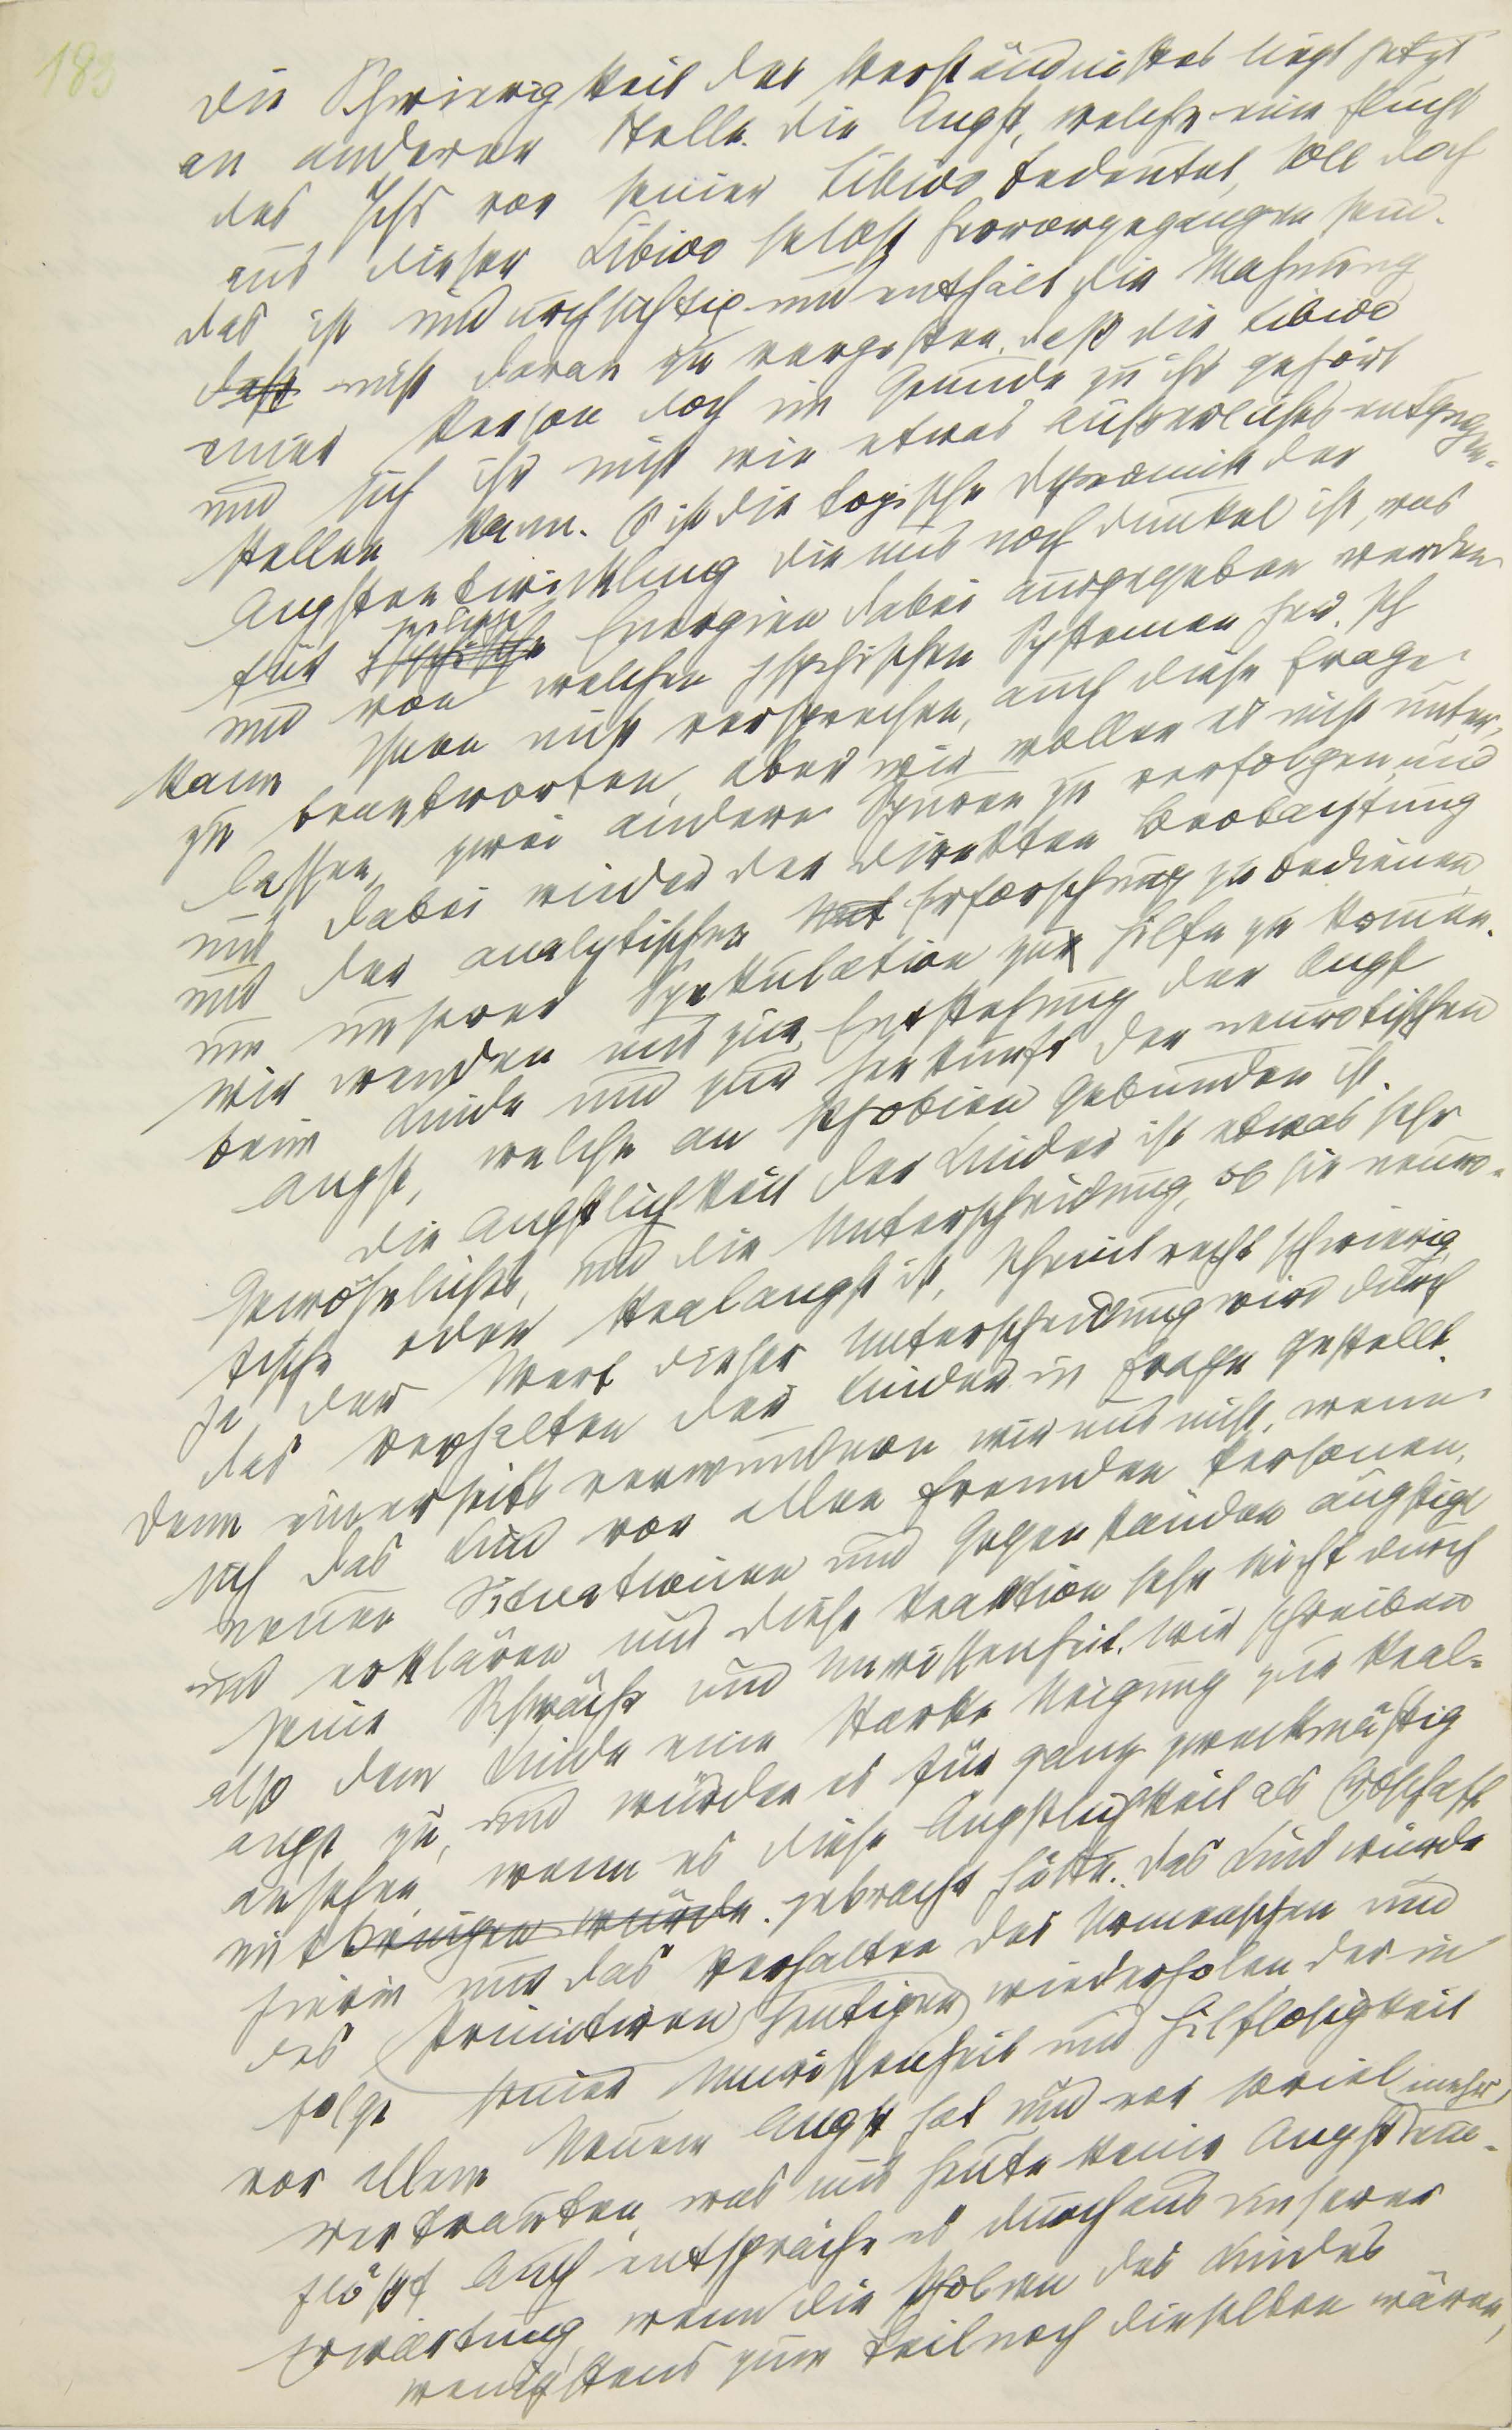 183
Die Schwierigkeit des Verständnisses liegt jetzt
an anderer Stelle. Die Angst, welche eine Flucht
des Ichs vor seiner Libido bedeutet, soll doch
aus dieser Libido selbst hervorgegangen sein.
Das ist undurchsichtig und enthält die Mahnung
daß nicht daran zu vergessen, daß die Libido
einer Person doch im Grunde zu ihr gehört
und sich ihr nicht wie etwas äußerliches entgegen-
stellen kann. Es ist die topische Dynamik der
Angstentwicklung die uns noch dunkel ist, was
für psychische seelische Energien dabei ausgegeben werden
und von welchen psychischen Systemen her. Ich
kann Ihnen nicht versprechen, auch diese Frage
zu beantworten, aber wir wollen es nicht unter-
lassen, zwei andere Spuren zu verfolgen und
uns dabei wieder der direkten Beobachtung
und der analytischen Erforschung zu bedienen
um unserer Spekulation zur Hilfe zu kommen.
Wir wenden uns zur Entstehung der Angst
beim Kinde und zur Herkunft der neurotischen
Angst, welche an Phobien gebunden ist.
Die Ängstlichkeit der Kinder ist etwas sehr
Gewöhnliches, und die Unterscheidung, ob sie neuro-
tische oder Realangst ist, scheint recht schwierig
Ja, der Wert dieser Unterscheidung wird durch
das Verhalten der Kinder in Frage gestellt.
Denn einerseits verwundern wir uns nicht, wenn
sich das Kind vor allen fremden Personen,
neuen Situationen und Gegenständen ängstigt
und erklären uns diese Reaktion sehr leicht durch
seine Schwäche und Unwissenheit. Wir schreiben
also dem Kinde eine starke Neigung zur Real-
angst zu, und würden es für ganz zweckmäßig
ansehen, wenn es diese Ängstlichkeit als Erbschaft
mitbringen würde. gebracht hätte. Das Kind würde
hierin nur das Verhalten des Urmenschen und
des Primitiven heutigen wiederholen der in
folge seiner Unwissenheit und Hilflosigkeit
vor allem Neuen Angst hat und vor soviel
Vertrauten, was uns heute keine Angst mehr ein-
flößt. Auch entspräche es durchaus unserer
Erwartung, wenn die Phobien des Kindes
wenigstens zum Teil noch dieselben wären,